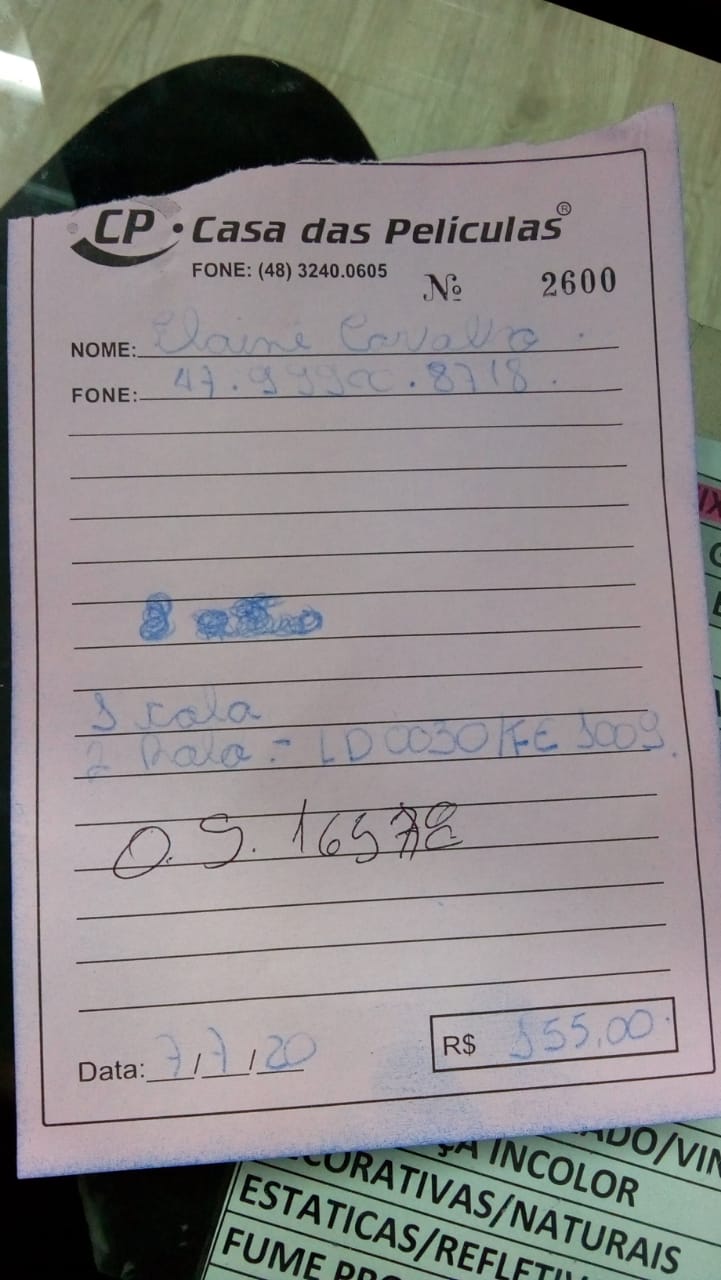 CP • Casa das Películas®
FONE: (48) 3240.0605
Nº 2600
NOME: Elaine Carvalho
FONE: 47.999
.8718.
1 cola
2 Rolo - LD0030/FE 1009.
O.S. 165
Data: 7/7/20
R$ 155,00
ADO/VIN
ÇA INCOLOR
CORATIVAS/NATURAIS
ESTATICAS/REFLETIV
FUME PRO